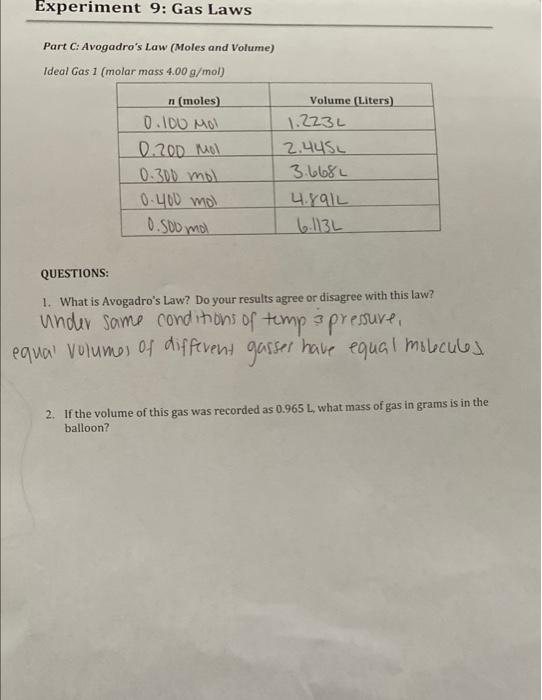 Experiment 9: Gas Laws
Part C: Avogadro's Law (Moles and Volume)
Ideal Gas 1 (molar mass 4.00 g/mol)
n (moles) Volume (Liters)
0.100 Mol 1.223L
0.200 Mol 2.445L
0.300 mol 3.668L
0.400 mol 4.891L
0.500 mol 6.113L
QUESTIONS:
1. What is Avogadro's Law? Do your results agree or disagree with this law?
under same conditions of temp & pressure,
equal volumes of different gasses have equal molecules
2. If the volume of this gas was recorded as 0.965 L, what mass of gas in grams is in the
balloon?